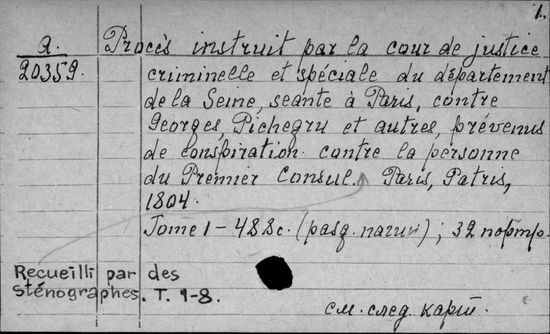 1.
a. Procès instruit par la cour de justice
20359. criminelle et spéciale du département
de la Seine, seante à Paris, contre
Georges, Pichegru et autres, prévenus
de conspiration contre la personne
du Premier Consul. Paris, Patris,
1804.
Tome 1 – 488c. (разд. пагин.); 32 портр.
Recueilli par des
sténographes. T. 1-8.
см. след. карт.